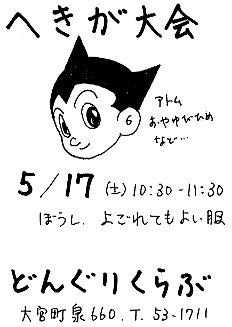 へきが大会
アトム
おやゆびひめ
など…
6
5/17(土)10:30-11:30
ぼうし、よごれてもよい服
どんぐりくらぶ
大宮町泉660.T.53-1711